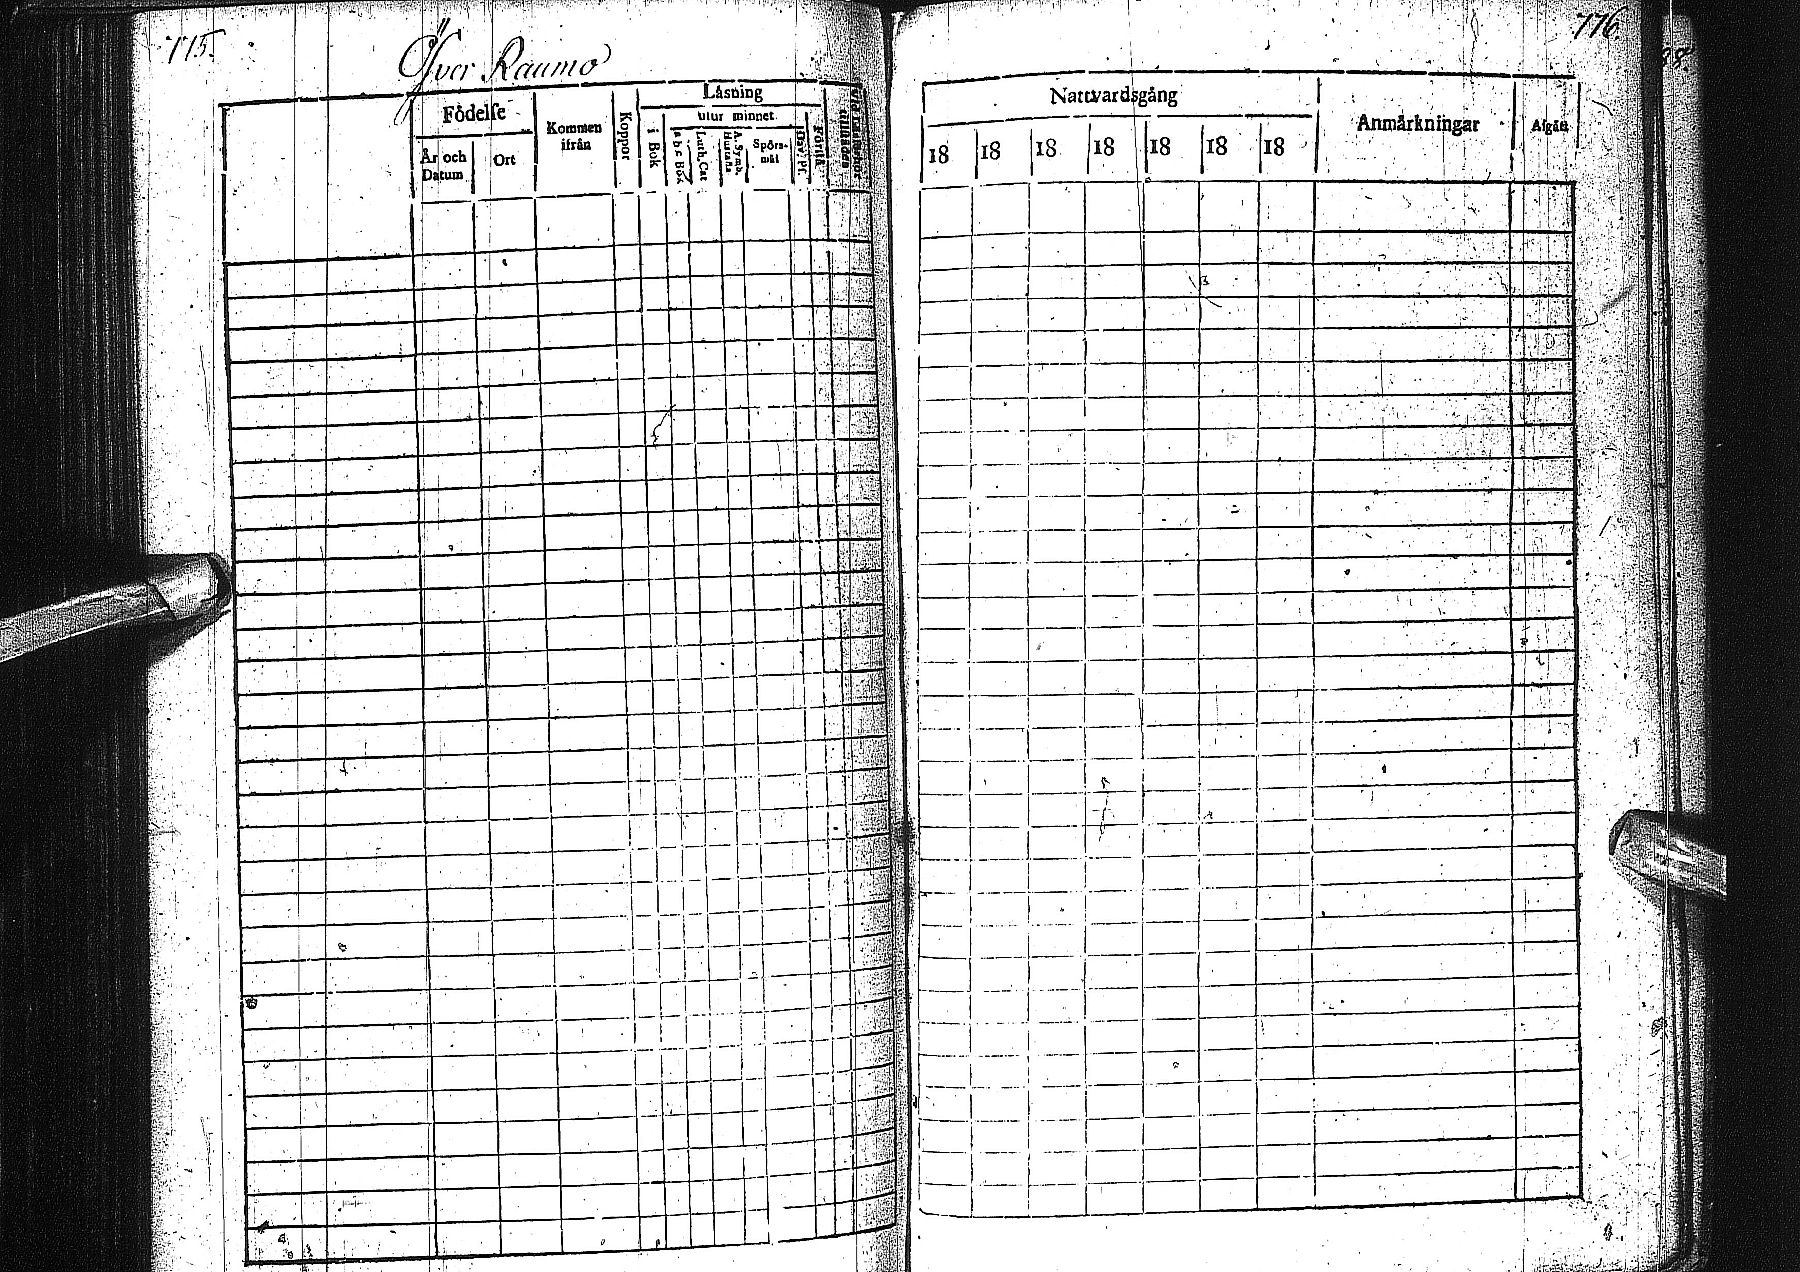 115.
Öfver Raumo
Födelse
År och Datum
Ort
Kommen ifrån
Koppor
Läsning
i Bok
utur minnet
a b c Bok
Luth. Cat
A. Symb. Hustafla
Spörsmål
Dav. Ps.
Förstå
116.
Nattvardsgång
18 18 18 18 18 18 18
Anmärkningar
Afgått